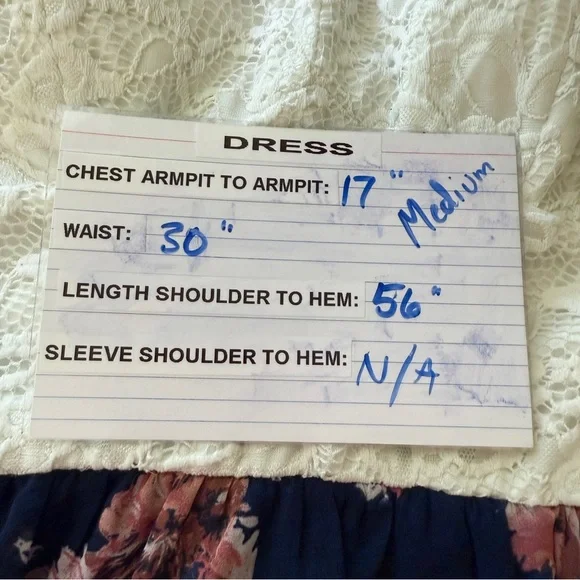 DRESS
CHEST ARMPIT TO ARMPIT: 17"
Medium
WAIST: 30"
LENGTH SHOULDER TO HEM: 56"
SLEEVE SHOULDER TO HEM: N/A